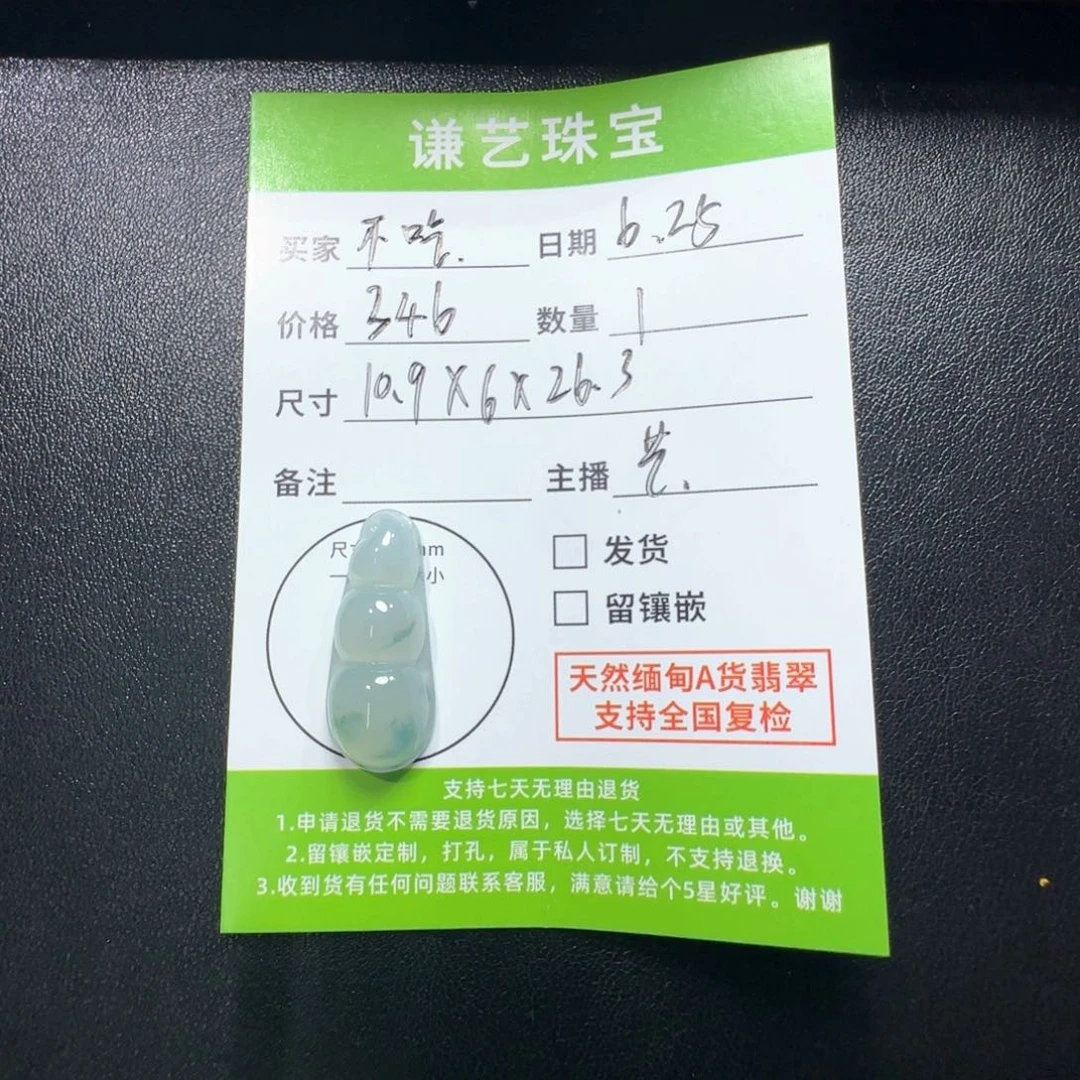 谦艺珠宝
买家 不啥. 日期 6.25
价格 346 数量 1
尺寸 10.9X6X26.3
备注 主播 艺.
尺 mm
小
发货
留镶嵌
天然缅甸A货翡翠
支持全国复检
支持七天无理由退货
1.申请退货不需要退货原因，选择七天无理由或其他。
2.留镶嵌定制，打孔，属于私人订制，不支持退换。
3.收到货有任何问题联系客服，满意请给个5星好评。谢谢